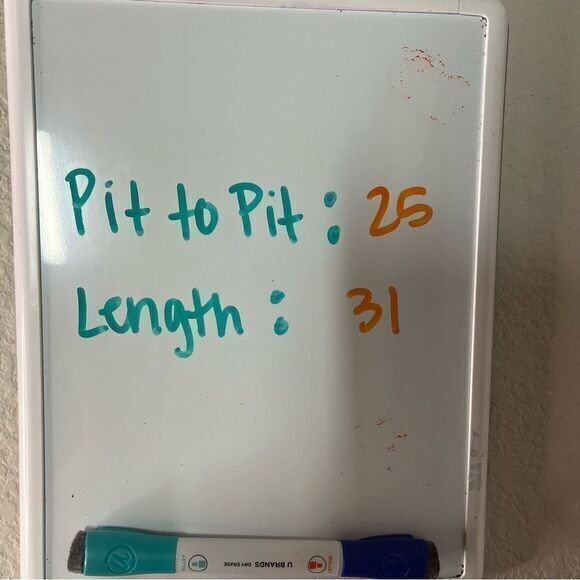 Pit to Pit: 25
Length: 31
BULLET U BRANDS DRY ERASE BULLET